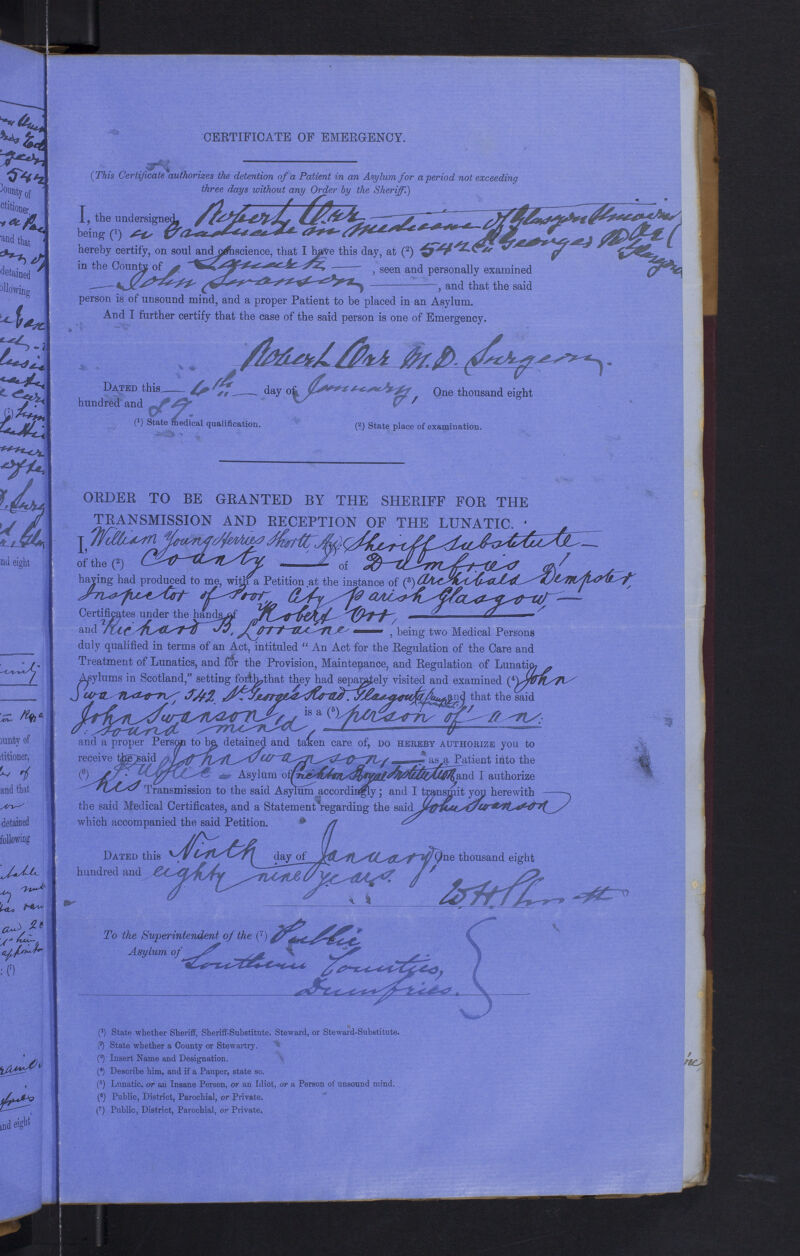 CERTIFICATE OF EMERGENCY.
(This Certificate authorizes the detention of a Patient in an Asylum for a period not exceeding
three days without any Order by the Sheriff.)
I, the undersigned, Robert Orr
being (¹) a Graduate in medicine of Glasgow University
hereby certify, on soul and conscience, that I have this day, at (²) 542 St Georges Road
Glasgow
in the County of Lanark, seen and personally examined
John Swanson, and that the said
person is of unsound mind, and a proper Patient to be placed in an Asylum.
And I further certify that the case of the said person is one of Emergency.
Robert Orr M.D. Surgeon.
DATED this 6th day of January, One thousand eight
hundred and 89
(¹) State medical qualification. (²) State place of examination.
ORDER TO BE GRANTED BY THE SHERIFF FOR THE
TRANSMISSION AND RECEPTION OF THE LUNATIC.
I, William Young Herries Shortt, Sheriff Substitute
of the (²) County of Dumfries,
having had produced to me, with a Petition at the instance of (³) Archibald Dempster,
Inspector of Poor, City Parish Glasgow,
Certificates under the hands of Robert Orr,
and Richard B. Lorraine, being two Medical Persons
duly qualified in terms of an Act, intituled "An Act for the Regulation of the Care and
Treatment of Lunatics, and for the Provision, Maintenance, and Regulation of Lunatic
Asylums in Scotland," setting forth that they had separately visited and examined (⁴) John
Swanson, 542 St Georges Road, Glasgow (a pauper) and that the said
John Swanson, is a (⁵) person of un:
:sound mind,
and a proper Person to be detained and taken care of, DO HEREBY AUTHORIZE you to
receive the said John Swanson, as a Patient into the
(⁶) Public Asylum of Crichton Royal Institution and I authorize
his Transmission to the said Asylum accordingly; and I transmit you herewith
the said Medical Certificates, and a Statement regarding the said John Swanson
which accompanied the said Petition.
DATED this Ninth day of January One thousand eight
hundred and eighty nine years.
To the Superintendent of the (⁷) Public
Asylum of Southern Counties,
Dumfries.
(¹) State whether Sheriff, Sheriff-Substitute, Steward, or Steward-Substitute.
(²) State whether a County or Stewartry.
(³) Insert Name and Designation.
(⁴) Describe him, and if a Pauper, state so.
(⁵) Lunatic, or an Insane Person, or an Idiot, or a Person of unsound mind.
(⁶) Public, District, Parochial, or Private.
(⁷) Public, District, Parochial, or Private.